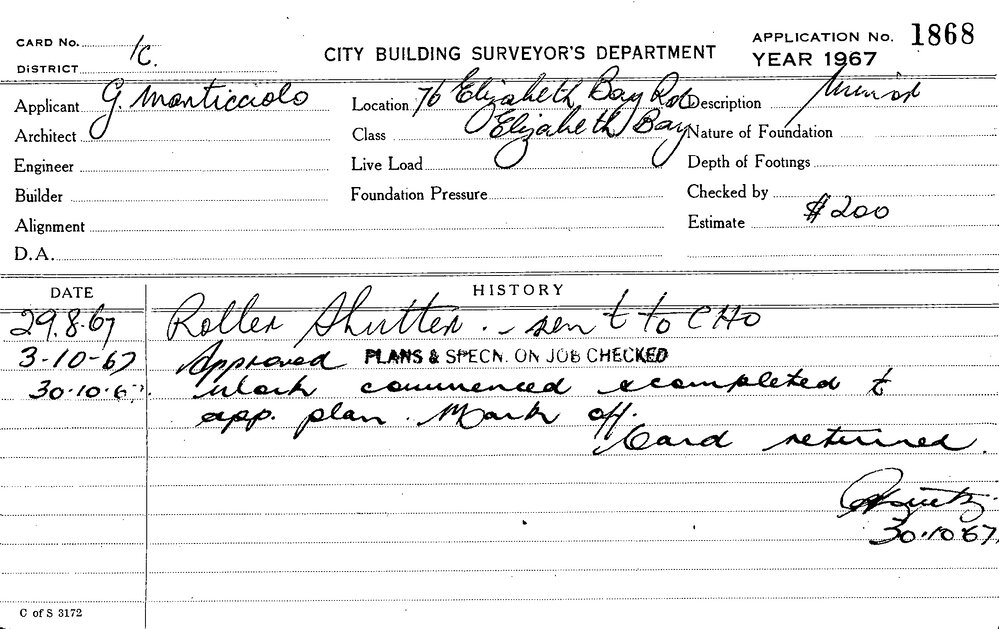 CARD No. 1c.
DISTRICT
CITY BUILDING SURVEYOR'S DEPARTMENT
APPLICATION No. 1868
YEAR 1967
Applicant G. Monticciolo
Location 76 Elizabeth Bay Rd
Description Minor
Architect
Class Elizabeth Bay
Nature of Foundation
Engineer
Live Load
Depth of Footings
Builder
Foundation Pressure
Checked by
Alignment
Estimate $200
D.A.
DATE HISTORY
29.8.67 Roller Shutter. - sent to CHO
3-10-67 Approved PLANS & SPECN. ON JOB CHECKED
30.10.67. Work commenced & completed t
app. plan. Mark off.
Card returned.
30.10.67.
C of S 3172